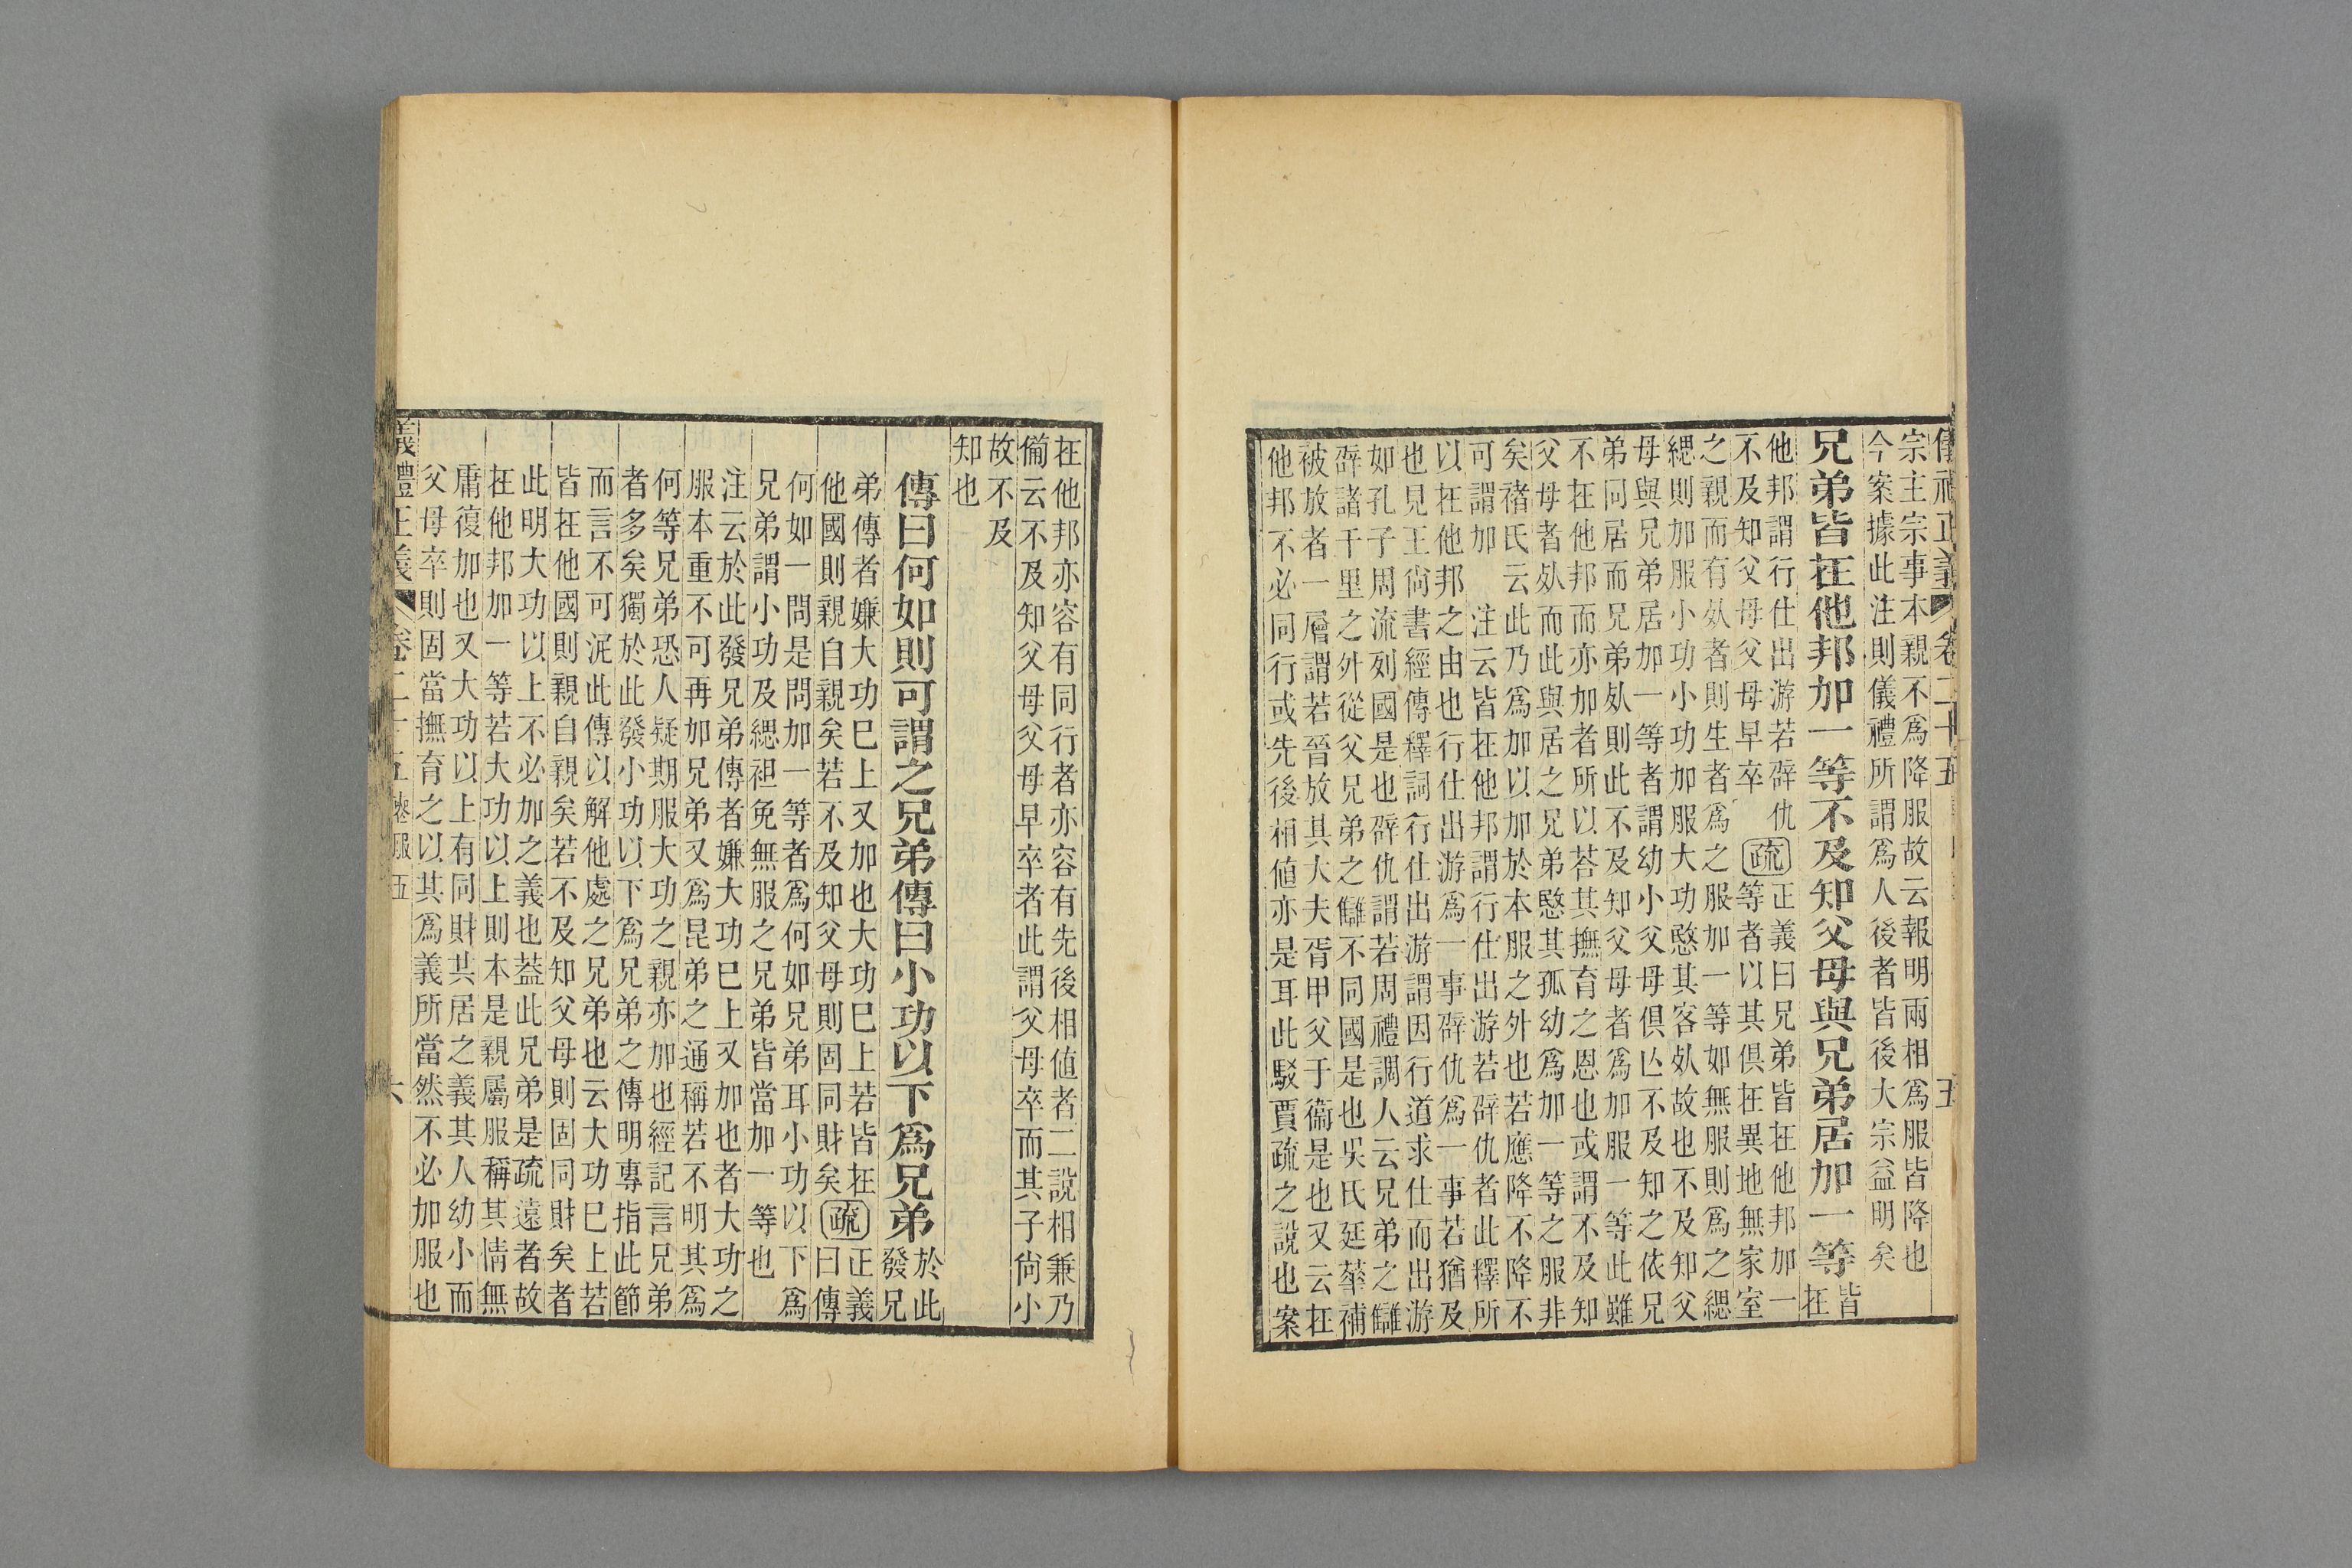 儀禮正義 卷二十五 五
宗主宗事本親不爲降服故云報明兩相爲服皆降也
今案據此注則儀禮所謂爲人後者皆後大宗益明矣
兄弟皆在他邦加一等不及知父母與兄弟居加一等皆在
他邦謂行仕出游若辟仇
不及知父母父母早卒
疏
正義曰兄弟皆在他邦加一
等者以其俱在異地無家室
之親而有㱕者則生者爲之服加一等如無服則爲之緦
緦則加服小功小功加服大功愍其客死故也不及知父
母與兄弟居加一等者謂幼小父母俱亾不及知之依兄
弟同居而兄弟死則此不及知父母者爲加服一等此雖
不在他邦而亦加者所以荅其撫育之恩也或謂不及知
父母者死而此與居之兄弟愍其孤幼爲加一等之服非
矣褚氏云此乃爲加以加於本服之外也若應降不降不
可謂加 注云皆在他邦謂行仕出游若辟仇者此釋所
以在他邦之由也行仕出游爲一事辟仇爲一事若猶及
也見王尙書經傳釋詞行仕出游謂因行道求仕而出游
如孔子周流列國是也辟仇謂若周禮調人云兄弟之讎
辟諸千里之外從父兄弟之讎不同國是也吳氏廷華補
被放者一層謂若晉放其大夫胥甲父于衞是也又云在
他邦不必同行或先後相値亦是耳此駁賈疏之說也案
在他邦亦容有同行者亦容有先後相値者二說相兼乃
備云不及知父母父母早卒者此謂父母卒而其子尙小
故不及
知也
傳曰何如則可謂之兄弟傳曰小功以下爲兄弟於此發兄
弟傳者嫌大功已上又加也大功已上若皆在
他國則親自親矣若不及知父母則固同財矣
疏
正義曰傳
何如一問是問加一等者爲何如兄弟耳小功以下爲
兄弟謂小功及緦袒免無服之兄弟皆當加一等也
注云於此發兄弟傳者嫌大功已上又加也者大功之
服本重不可再加兄弟又爲昆弟之通稱若不明其爲
何等兄弟恐人疑期服大功之親亦加也經記言兄弟
者多矣獨於此發小功以下爲兄弟之傳明專指此節
而言不可泥此傳以解他處之兄弟也云大功已上若
皆在他國則親自親矣若不及知父母則固同財矣者
此明大功以上不必加之義也葢此兄弟是疏遠者故
在他邦加一等若大功以上則本是親屬服稱其情無
庸復加也又大功以上有同財共居之義其人幼小而
父母卒則固當撫育之以其爲義所當然不必加服也
義禮正義 卷二十五 喪服五 六